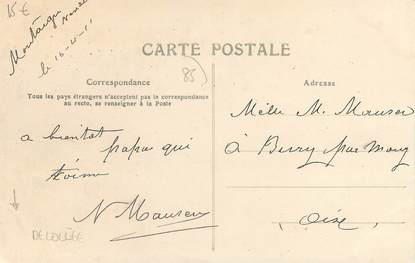 15 €
Montaigu
Vendée
le 16-11-11
CARTE POSTALE
85
Correspondance
Tous les pays étrangers n'acceptent pas la correspondance
au recto, se renseigner à la Poste
a bientot
papa qui
t'aime
N Mauser
DECOLLÉE
Adresse
Melle M. Mauser
à Berry par Mouy
Oise